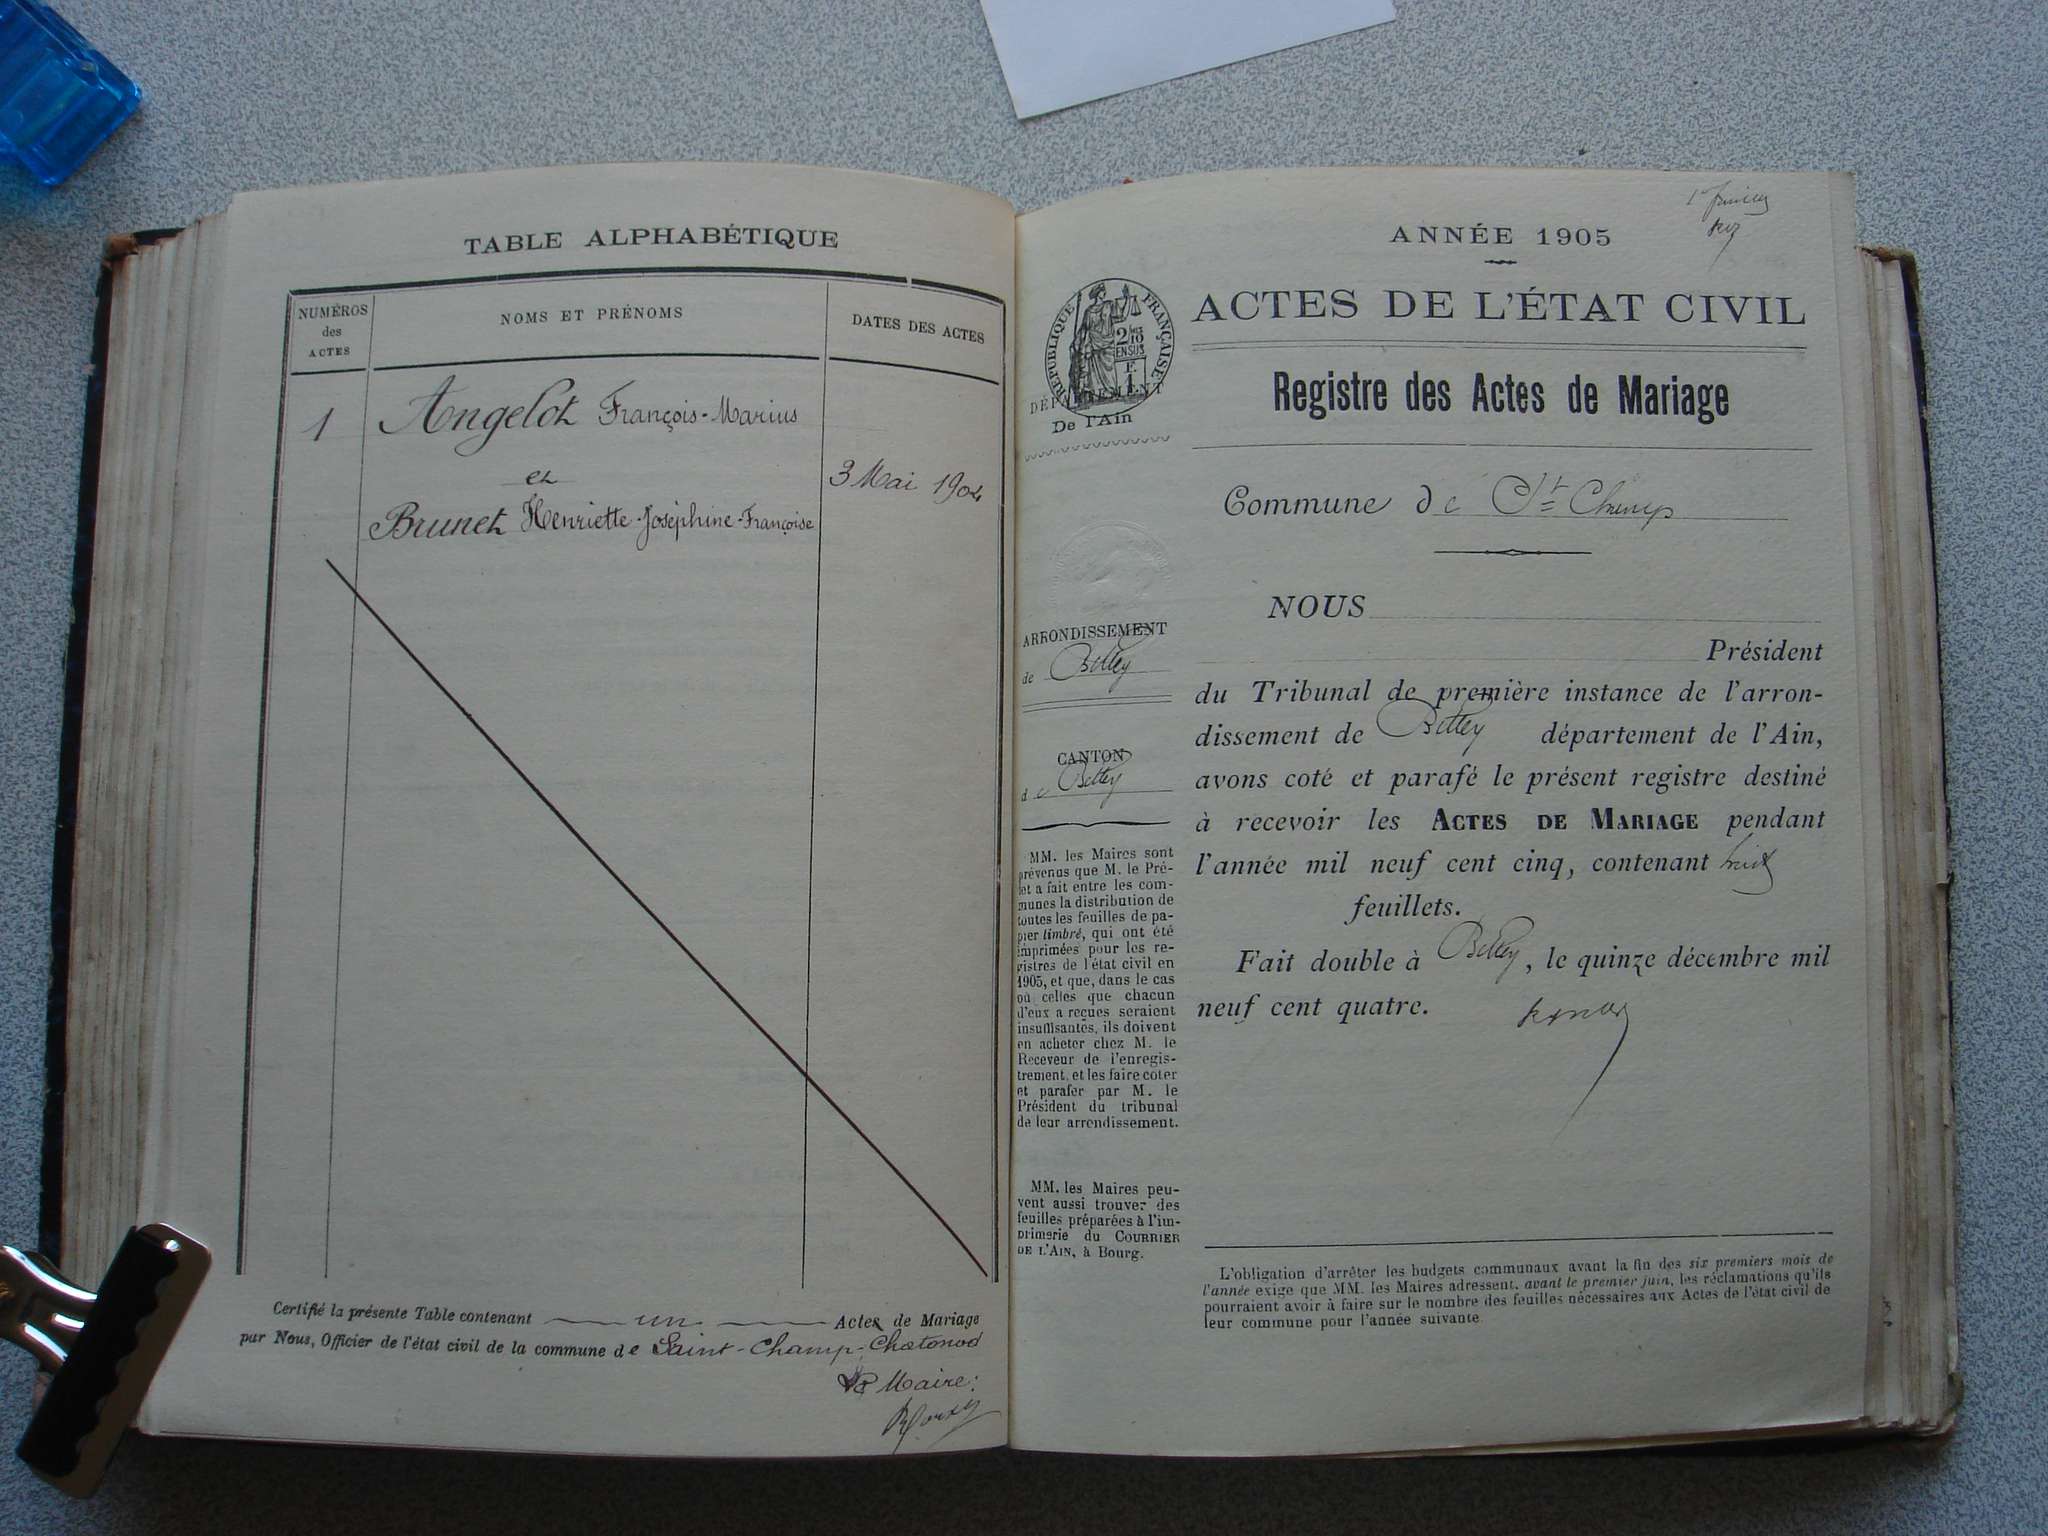 TABLE ALPHABÉTIQUE
NUMÉROS
des
ACTES
NOMS ET PRÉNOMS
DATES DES ACTES
1
Angelot François-Marius
et
3 Mai 1904
Brunet Henriette-Joséphine-Françoise
Certifié la présente Table contenant un Actes de Mariage
par Nous, Officier de l'état civil de la commune de Saint-Champ-Chatonod
Le Maire:
1er feuillet
ANNÉE 1905
ACTES DE L'ÉTAT CIVIL
RÉPUBLIQUE FRANÇAISE
2/10
EN SUS
1
DÉPARTEMENT
De l'Ain
Registre des Actes de Mariage
Commune de St Champ
NOUS
Président
du Tribunal de première instance de l'arron-
dissement de Belley département de l'Ain,
avons coté et parafé le présent registre destiné
à recevoir les ACTES DE MARIAGE pendant
l'année mil neuf cent cinq, contenant huit
feuillets.
Fait double à Belley, le quinze décembre mil
neuf cent quatre.
ARRONDISSEMENT
de Belley
CANTON
de Belley
MM. les Maires sont
prévenus que M. le Pré-
fet a fait entre les com-
munes la distribution de
toutes les feuilles de pa-
pier timbré, qui ont été
imprimées pour les re-
gistres de l'état civil en
1905, et que, dans le cas
où celles que chacun
d'eux a reçues seraient
insuffisantes, ils doivent
en acheter chez M. le
Receveur de l'enregis-
trement, et les faire coter
et parafer par M. le
Président du tribunal
de leur arrondissement.
MM. les Maires peu-
vent aussi trouver des
feuilles préparées à l'im-
primerie du COURRIER
DE L'AIN, à Bourg.
L'obligation d'arrêter les budgets communaux avant la fin des six premiers mois de
l'année exige que MM. les Maires adressent, avant le premier juin, les réclamations qu'ils
pourraient avoir à faire sur le nombre des feuilles nécessaires aux Actes de l'état civil de
leur commune pour l'année suivante.